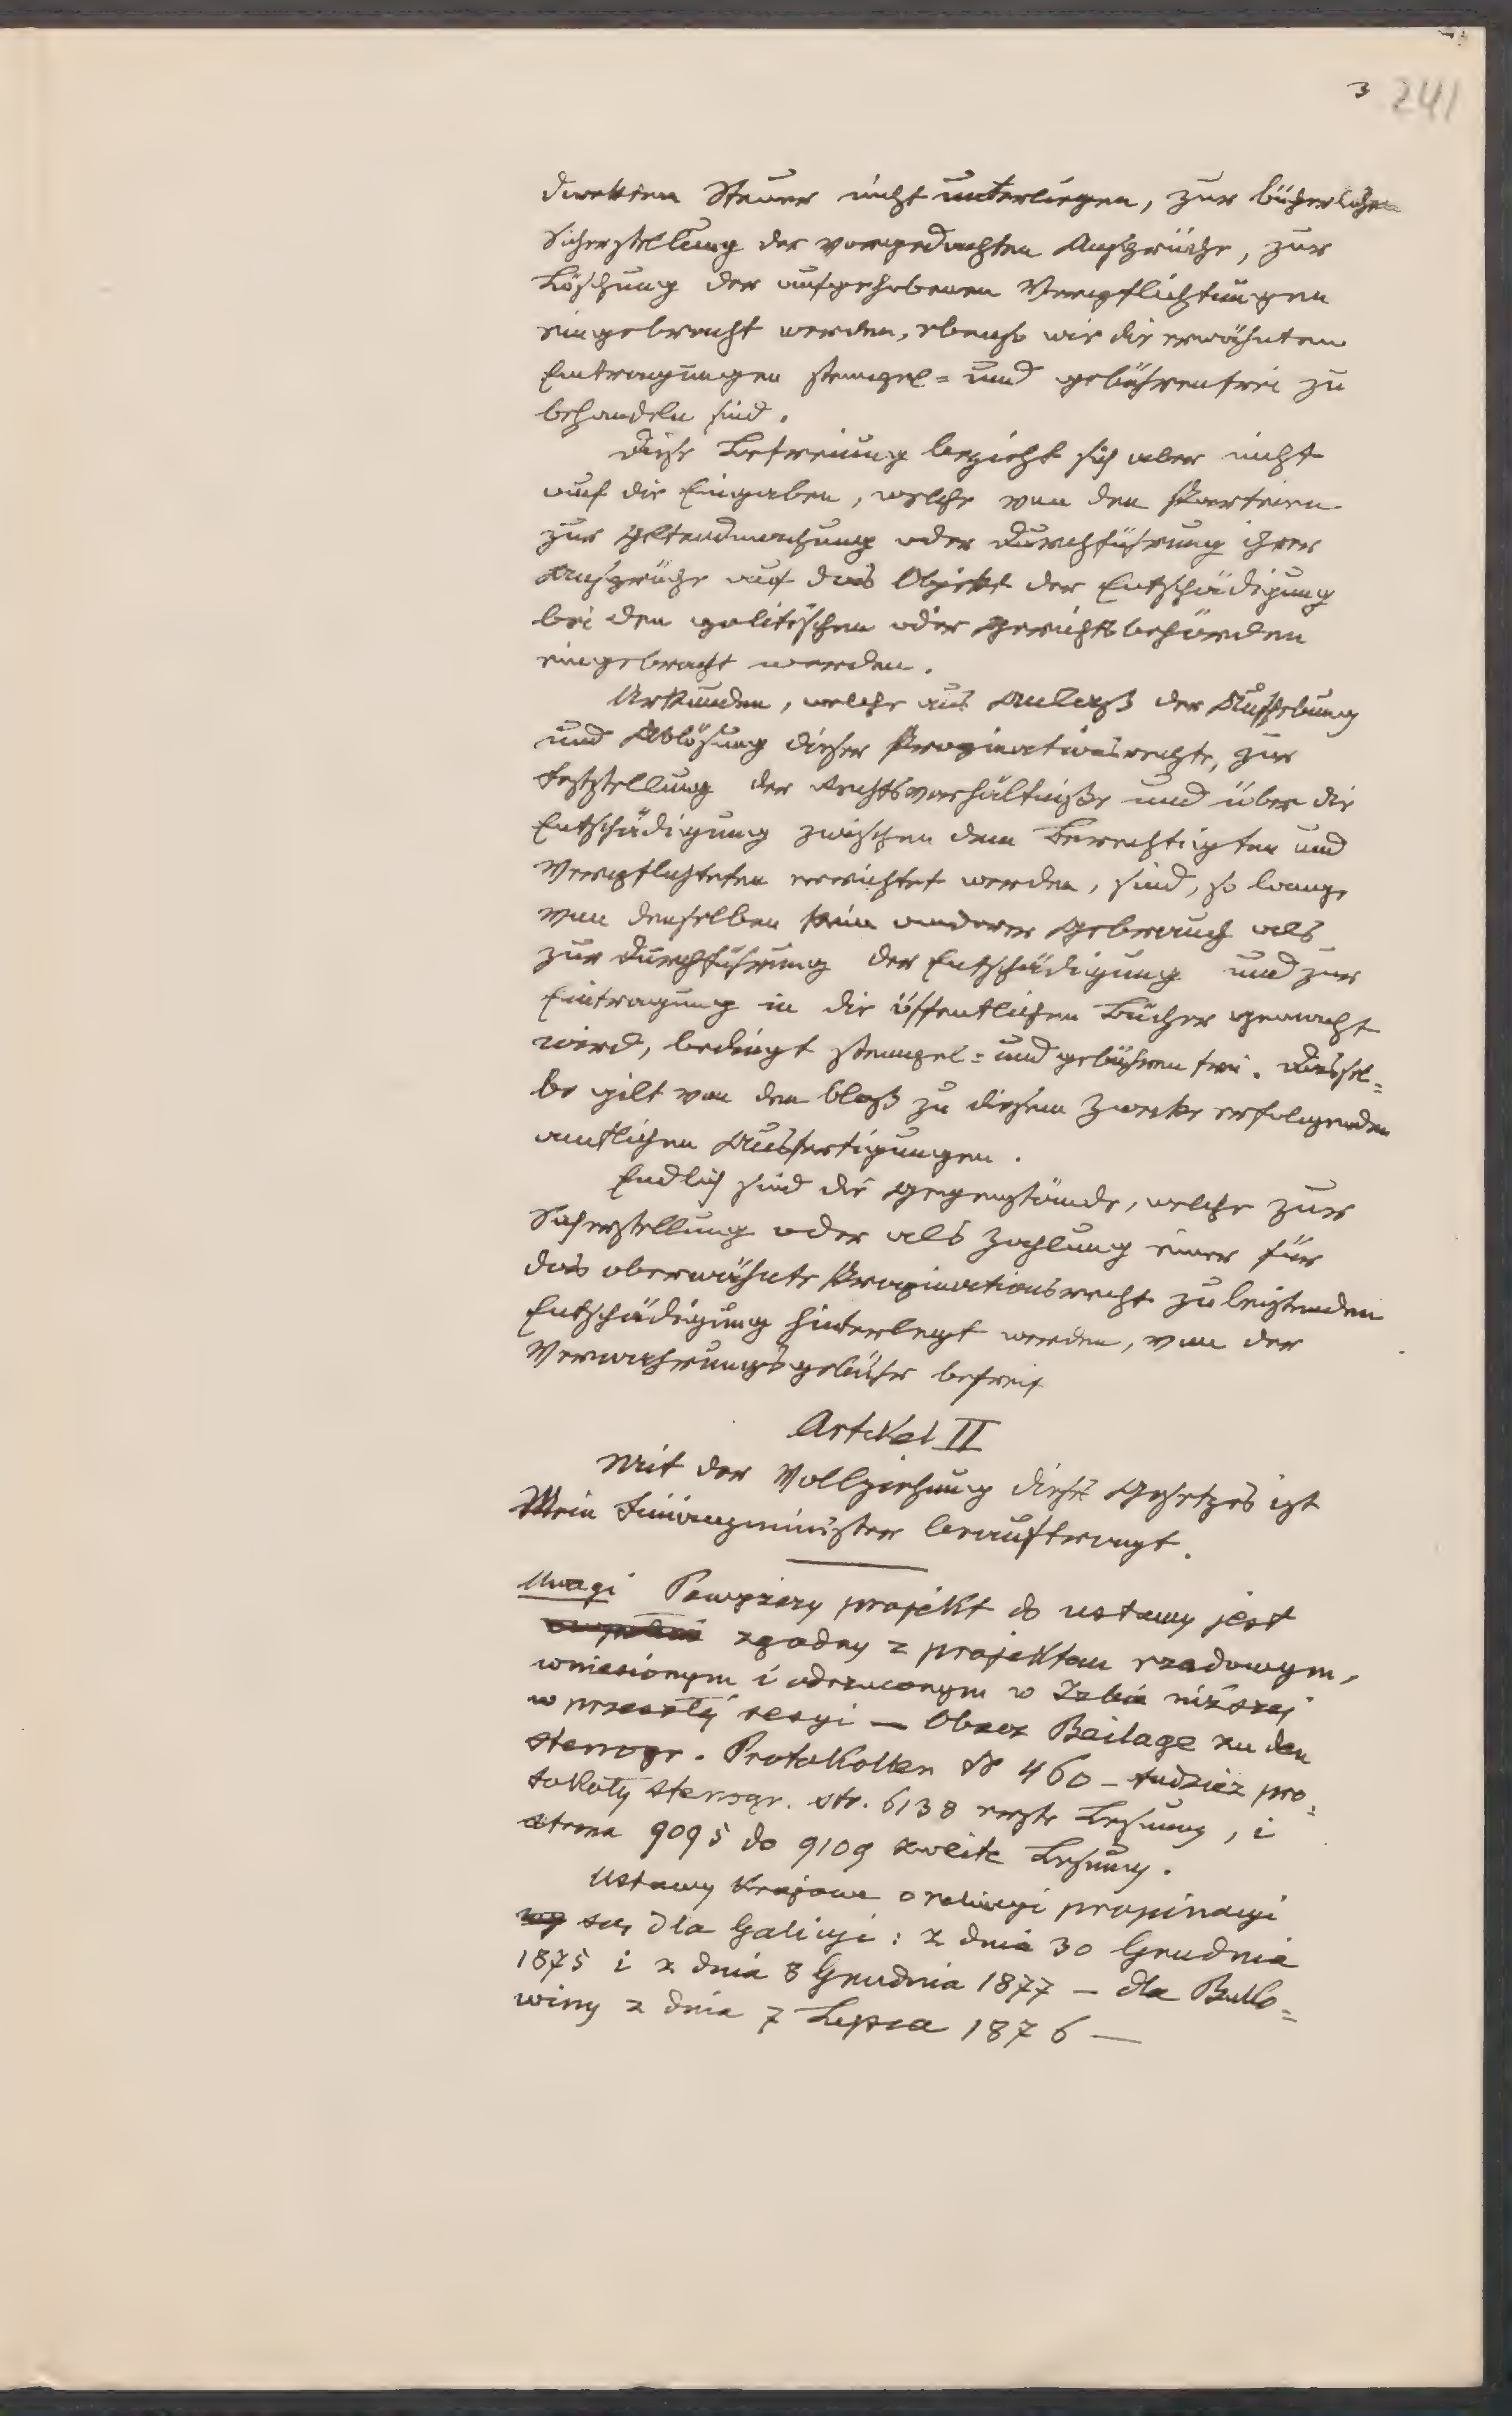 3 241
direkten Steuer nicht unterliegen, zur bücherlichen
Sicherstellung der vorgedachten Ansprüche, zur
Löschung der aufgehobenen Verpflichtungen
eingebracht werden, ebenso wie die erwähnten
Eintragungen stempel= und gebührenfrei zu
behandeln sind.
Diese Befreiung bezieht sich aber nicht
auf die Eingaben, welche von den Parteien
zur Geltendmachung oder Durchführung ihrer
Ansprüche auf das Objekt der Entschädigung
bei den politischen oder Gerichtsbehörden
eingebracht werden.
Urkunden, welche aus Anlaß der Aufhebung
und Ablösung dieser Propinationsrechte, zur
Feststellung der Rechtsverhältniße und über die
Entschädigung zwischen dem Berechtigten und
Verpflichteten errichtet werden, sind, so lange
von denselben kein anderer Gebrauch als
zur Durchführung der Entschädigung und zur
Eintragung in die öffentlichen Bücher gemacht
wird, bedingt stempel= und gebühren frei. Dassel=
be gilt von den bloß zu diesem Zwecke erfolgenden
amtlichen Ausfertigungen.
Endlich sind die Gegenstände, welche zur
Sicherstellung oder als Zahlung einer für
das oberwähnte Propinationsrecht zu leistenden
Entschädigung hinterlegt werden, von der
Verwahrungsgebühr befreit
Artikel II
Mit der Vollziehung dieses Gesetzes ist
Mein Finanzminister beauftragt.
Uwagi Powyższy projekt do ustawy jest
zgodny z projektem rządowym,
wniesionym i odrzuconym w Izbie niższej
w przeszłej sesyi — Obacz Beilage zu den
stenogr. Protokollen № 460 — tudzież pro=
tokoły stenogr. str. 6138 erste Lesung, i
strona 9095 do 9109 zweite Lesung.
Ustawy krajowe o propinacyi
są, dla Galicyi: z dnia 30 Grudnia
1875 i z dnia 8 Grudnia 1877 — dla Buko=
winy z dnia 7 Lipca 1876 —